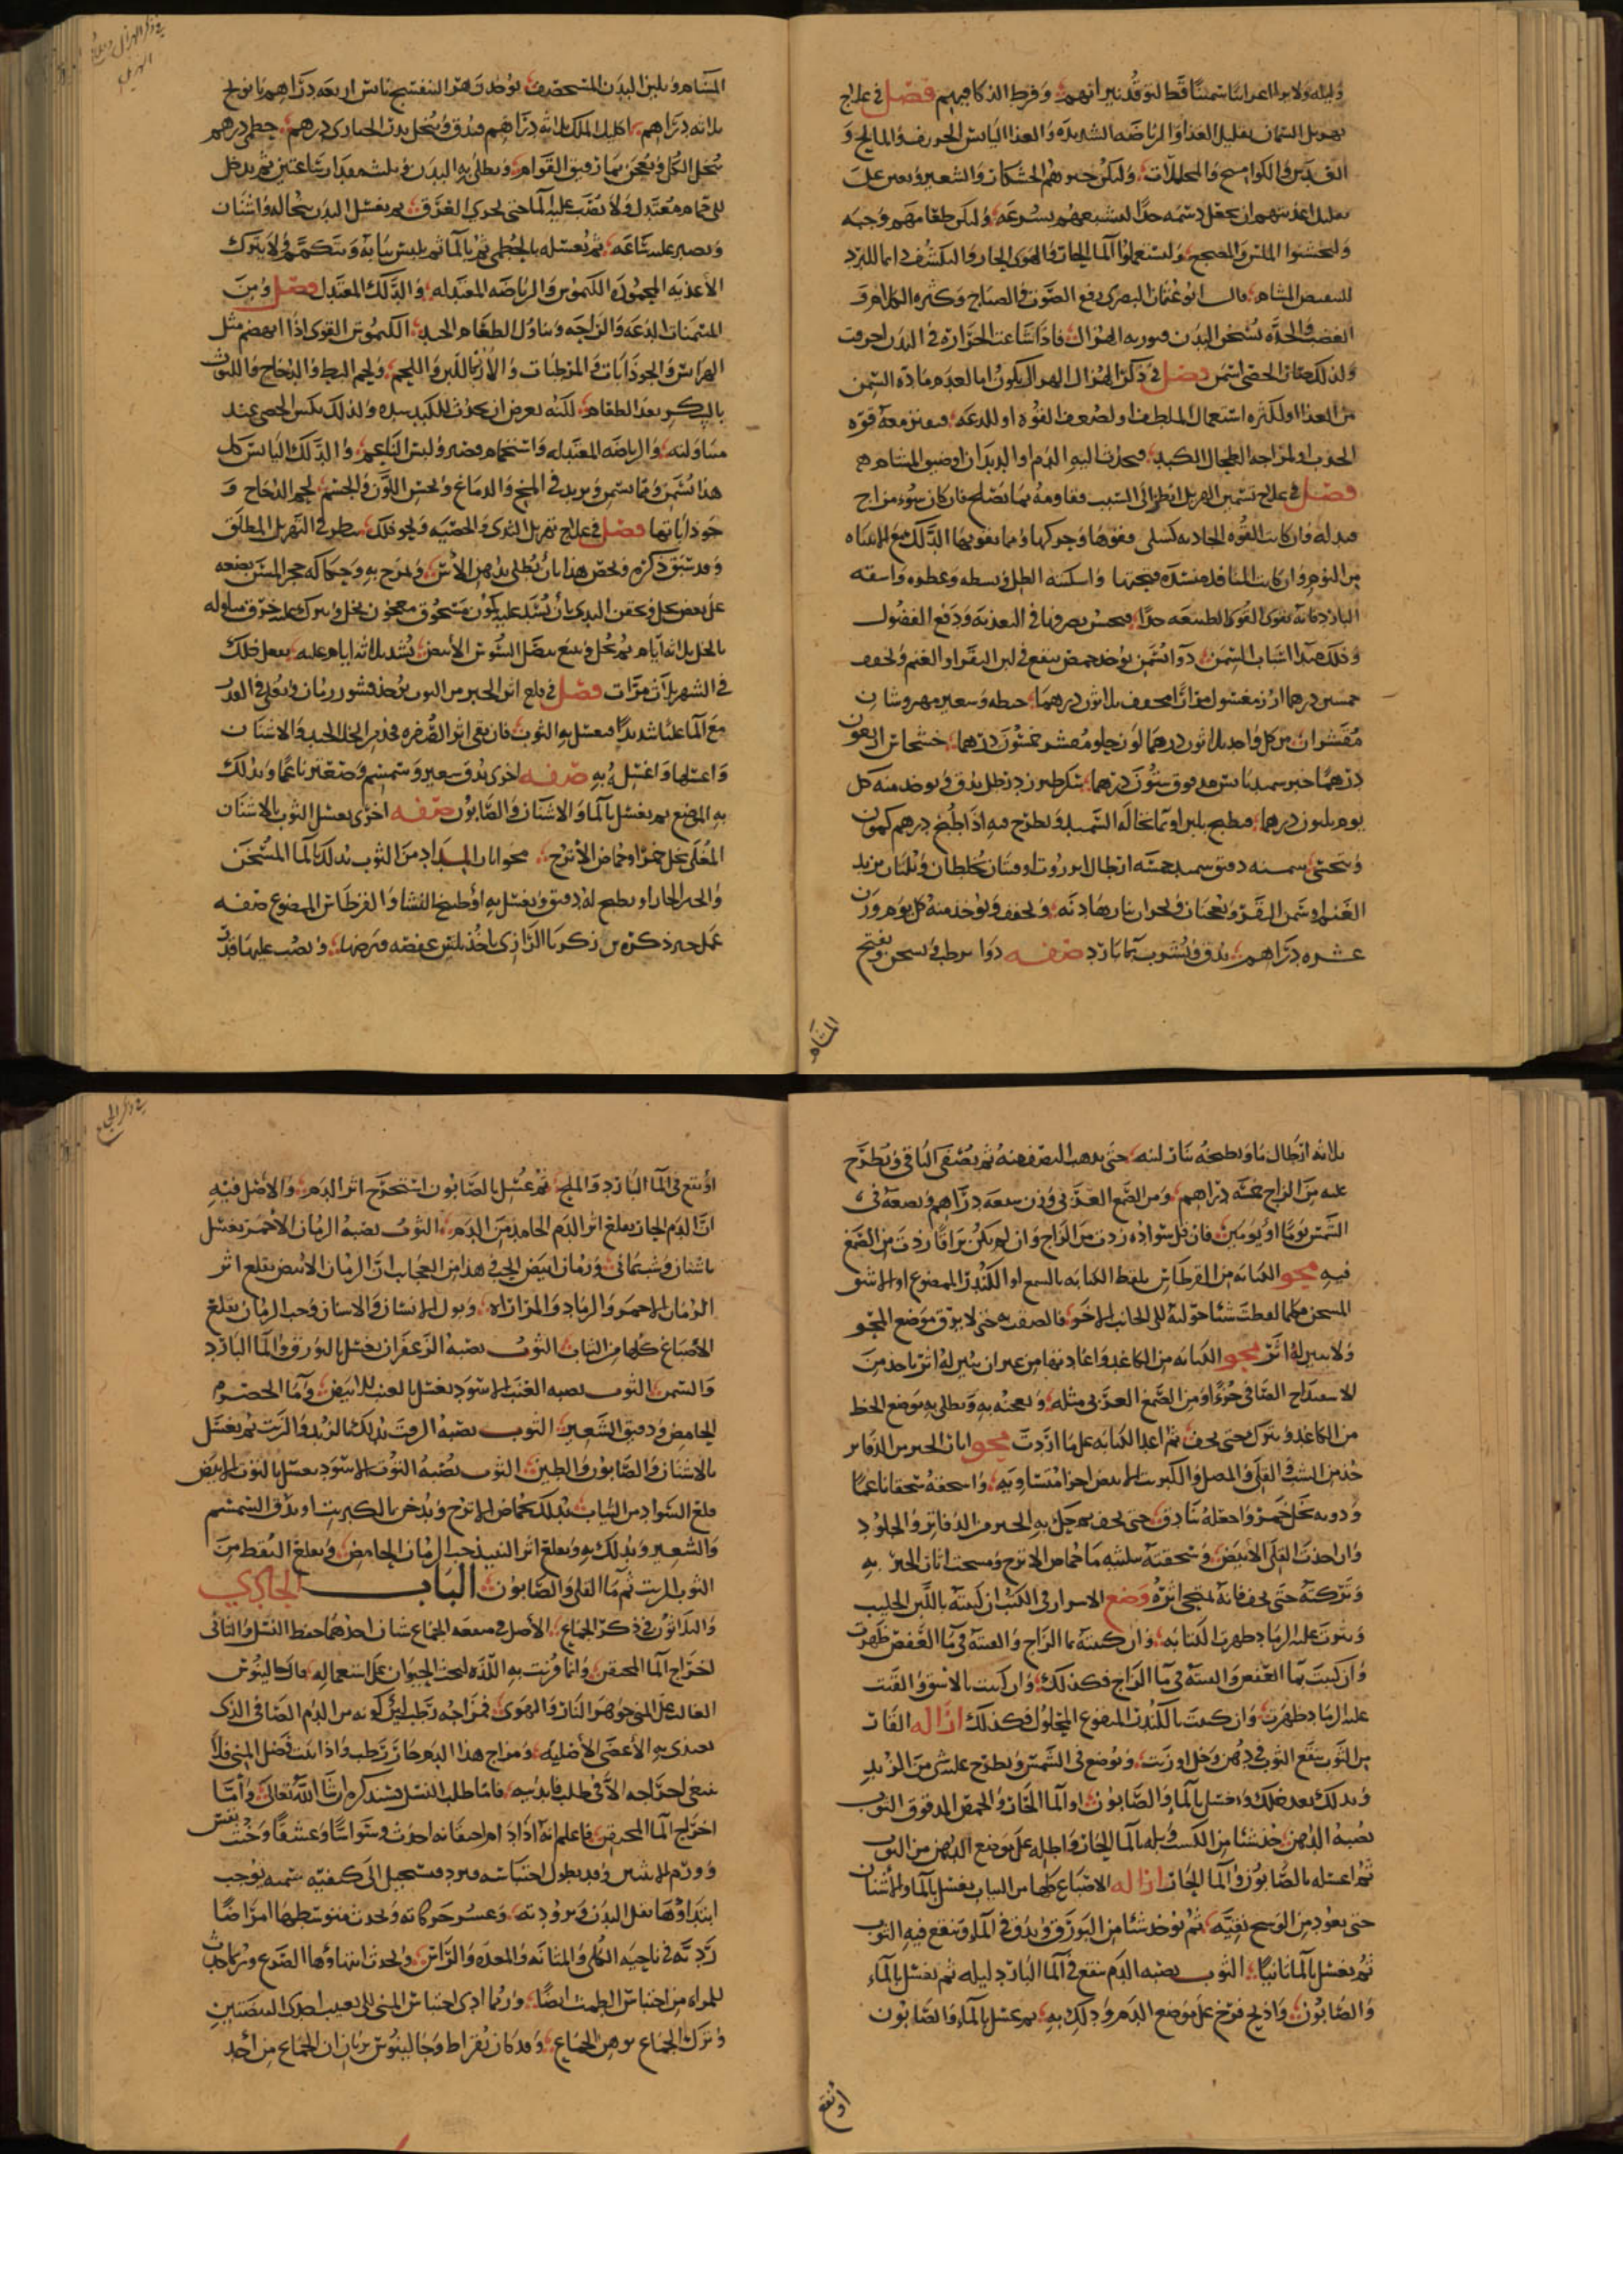 وليله ولا يولد اعداسا سمينا قط لتوقد نيرانهم وفرط الذكا فيهم فصل في علاج
تهزيل السمان بتقليل الغذا والرياضه الشديده والغذا اليابس الحريف والمالح و
القديد والكواميخ والمحللات وليكن خبزهم الخشكار والشعير ويعين على
تقليل اغذيتهم ان يجعل دسمه جدا لتشبعهم بسرعه وليكن طعامهم وجبه
وليخشنوا الملبس والمضجع وليستعملوا الما الحار والهوى الحار والتكشف دايما للبرد
المسام قال ابو عثمان البصري رفع الصوت والصياح وكثره الكلام و
الغضب والحده تسخن البدن فيورثه الهزال فاذا شاعت الحراره في البدن احرقت
ولذلك صار الخصي اسمن فصل في ذكر الهزال الهزال يكون اما لعدم ماده السمن
من الغذا او لكثره استعمال الملطف او لضعف القوه او للدعه معه قوه
الجذب او لمزاحمه الطحال الكبد اليه الدم او الديدان او ضيق المسام
فصل في علاج تسمين الهزيل انظر الى السبب فقاومه بما يصلح فان كان سوء مزاج
فبدله وان كانت القوه الجاذبه كسلى فقوها وحركها ومما يقويها الدلك مع الانتباه
من النوم وان كانت المنافذ منسده ففتحها واسكنه الظل وبسطه وعطره واسقه
البارد فانه يقوى القوى الطبيعيه جدا فيحسن تصرفها في التغذيه ودفع الفضول
وذلك مبدا اسباب السمن دوا يسمن يوخذ حمص ينقع في لبن البقر او الغنم ويجفف
خمسين درهما ارز مغسول مرارا مجفف ثلاثون درهما حنطه وشعير مهروسان
مقشوران من كل واحد ثلاثون درهما لوز حلو مقشر خمسون درهما خشخاش اربعون
درهما خبز سميد يابس مدقوق ستون درهما سكر طبرزد رطل يدق ويوخذ منه كل
يوم ثلثون درهما فيطبخ بلبن او بما نخاله السميد ويطرح فيه اذا طبخ درهم كمون
ويتحسى سمنه دقيق سميد خمسه ارطال يخلطان ويلتان بزبد
الغنم او سمن البقر ويعجنان ويخبزان بنار هاديه ويجفف ويوخذ منه كل يوم وزن
عشره دراهم يدق ويشرب بما بارد صفه دوا يرطب يسخن ويفتح
المسام
في ذكر الهزال وعلاج
الهزيل
المسام ويلين البدن المستحصف يوخذ زهر البنفسج يابس اربعه دراهم بابونج
ثلاثه دراهم اكليل الملك ثلاثه دراهم فيدق وينخل بزر الخبازى درهم خطمى درهم
ينخل الكل ويعجن بما رقيق القوام ويطلى به البدن ويلبث مقدار ساعتين ثم يدخل
الى حمام معتدل ولا يصب عليه الما حتى يجرى العرق ثم يغسل البدن بنخاله واشنان
ويصبر عليه ساعه ثم يغسله بالخطمى ثم بالما ثم يلبس ثيابه ويتكمم ولا يترك
الاغذيه المحموده الكيموس والرياضه المعتدله والدلك المعتدل فصل ومن
المسمنات الدعه والراحه وتناول الطعام الجيد الكيموس القوى اذا انهضم مثل
الهرايس والجوذابات والمرطبات والارز باللبن واللحم ولحم البط والدجاج واللبوب
بالسكر بعد الطعام لكنه يعرض ان يحدث للكبد سده ولذلك يكس الحصى عند
تناوله والرياضه المعتدله واستحمام قصير ولبس الناعم والدلك اليابس كل
هذا يسمن ومما يسمن ويزيد في المخ والدماغ ويحسن اللون والجسم لحم الدجاج و
جوذاباتها فصل في علاج تهزيل الثدى والخصيه ونحو ذلك ينظر في التهزيل المطلق
وقد سبق ذكره ويخص هذا بان يطلى بدهن الاس ويمرخ به وحكاكه حجر المسن بعضه
على بعض بخل ويحقن اليدى بان يشد عليه كمون مسحوق معجون بخل ويترك عليه خرق مبلوله
بالخل ثلاثه ايام ثم يحل ويتبع ببصل السوسن الابيض يشد ثلاثه ايام عليه يفعل ذلك
في الشهر ثلاث مرات فصل في قلع اثر الحبر من الثوب يوخذ قشور رمان ويغلى في القدر
مع الما غليا شديدا فيغسل به الثوب فان بقى اثر الصفره فخذ من الخل الجيد والاشنان
واغلها واغسله به صفه اخرى يدق شعير وسمسم وصعتر ناعما ويدلك
به الموضع ثم يغسل بالما والاشنان والصابون صفه اخرى يغسل الثوب بالاشنان
المغلى بخل خمر او حماض الاترج محو اثار المداد من الثوب بدلك بالما المسخن
والخبز الحار او يطبخ له دقيق ويغسل به او طبيخ النشا والقرطاس الممضوغ صفه
عمل حبر ذكره بن زكريا الرازى ياخذ ثلثين عفصه فيرضها ويصب عليها قدر
ثلاثه ارطال ما ويطبخه بنار لينه حتى يذهب النصف منه ثم يصفى الباقى ويطرح
عليه من الزاج خمسه دراهم ومن الصمغ العربى وزن سبعه دراهم ويضعه فى
الشمس يوما او يومين فان قل سواده زدت من الزاج وان لم يكن براقا زدت من الصمغ
فيه محو الكتابه من القرطاس بلقط الكتابه بالشمع او الكندر الممضوغ او الاشق
المسخن فكلما لقطت شيئا حولته الى الجانب الاخر فالصقت به حتى لا يرق موضع المحو
ولا يبين له اثر محو الكتابه من الكاغد واعادتها من غير ان يبين له اثر ياخذ من
الاسفيداج الصافى جزءا ومن الصمغ العربى مثله ويعجنه به ويطلى به موضع الخط
من الكاغد ويترك حتى يجف ثم اعد الكتابه على ما اردت محو اثار الحبر من الدفاتر
خذ من الشب والقلى والمصل والكبريت الابيض اجزا متساويه واسحقه سحقا ناعما
ودوبه بخل خمر واجعله بنادق حتى يجف ثم حك به الحبر من الدفاتر والجلود
وان اخذت القلى الابيض وسحقته بثلثيه ما حماض الاترج ومسحت اثار الحبر به
وتركته حتى يجف فانه يمتحى اثره وضع الاسرار في الكتب ان كتبته باللبن الحليب
وتثرت عليه الرماد ظهرت الكتابه وان كتبته بما الزاج والقيته في ما العفص ظهرت
وان كتبت بما العفص والقيته في ما الزاج فكذلك وان كتبت بالاشق والقيت
عليه الرماد ظهرت وان كتبت بالكندر المنقوع المحلول فكذلك ازاله القار
من الثوب ينقع الثوب في دهن وخل او زيت ويوضع في الشمس ويطرح عليه شى من الزبد
ويدلك بعد ذلك ويغسل بالما والصابون او الما الحار والحمص المدقوق الثوب
يصيبه الدهن خذ شيئا من الكسب وبله بالما الحار واطله على موضع الدهن من الثوب
ثم اغسله بالصابون والما الحار ازاله الاصباغ كلها من الثياب يغسل بالما والاشنان
حتى يعود من الوسخ نقيه ثم يوخذ شيئا من البورق ويدق في الما وينقع فيه الثوب
ثم يغسل بالما ثانيا الثوب يصيبه الدم ينقع في الما البارد ليله ثم يغسل بالماء
والصابون واذا ذبح فرخ على موضع الدم ودلك به ثم غسل بالماء والصابون
او نقع
في ذكر الجماع
او نقع في الما البارد والملح ثم غسل بالصابون استخرج اثر الدم والاصل فيه
ان الدم الحار يقلع اثر الدم الجامد من الدم الثوب يصيبه الرمان الاحمر يغسل
باشنان ورمان ابيض الحب في هذا من العجايب ان الرمان الابيض يقلع اثر
الرمان الاحمر والرماد والمراراه وبول الانسان والاسنان وحب الرمان يقلع
الاصباغ كلها من الثياب الثوب يصيبه الزعفران يغسل بالبورق والما البارد
والسمن الثوب يصيبه العنب الاسود يغسل بالعنب الابيض وما الحصرم
الحامض ودقيق الشعير الثوب يصيبه الزيت يدلك بالزبد والزيت ثم يغسل
بالاشنان والصابون والطين الثوب يصيبه التوت الاسود يغسل بالتوت الابيض
قلع السواد من الثياب يدلك بحماض الاترج ويدخن بالكبريت او يدق السمسم
والشعير ويدلك به ويقلع اثر النبيذ حب الرمان الحامض ويقلع النفط من
الثوب الزيت ثم ما القلى والصابون الباب الحادي
والثلاثون في ذكر الجماع الاصل في منفعه الجماع شيان احدهما حفظ النسل والثانى
اخراج الما المحتقن وانما قرنت به اللذه لتحث الحيوان على استعماله قال جالينوس
الغالب على المنى جوهر النار والهوى فمزاجه رطب لين كونه من الدم الصافى الذى
تغتذى به الاعضا الاصليه ومزاج هذا الدم حار رطب واذا ثبت فضل المنى فلا
ينبغى اخراجه الا في طلب فايدتيه فاما طلب النسل فسنذكره ان شا الله تعالى واما
اخراج الما المحتقن فاعلم انه اذا دام احتقانه احدث وسواسا وعشقا وخبث نفس
وورم الانثيين وقد يطول احتباسه فيبرد فيستحيل الى كيفيه سميه يوجب
ابتداوها ثقل البدن وبرودته وعسر حركاته ويحدث فتوسطها امراضا
رديه في ناحيه الكلى والمثانه والمعده والراس ويحدث انتهاوها الصرع وربما حدث
للمراه من احتباس الطمث ايضا وربما ادى احتباس المنى الى تعيب احدى البيضتين
وترك الجماع يوهن الجماع وقد كان بقراط وجالينوس يريان ان الجماع من احد